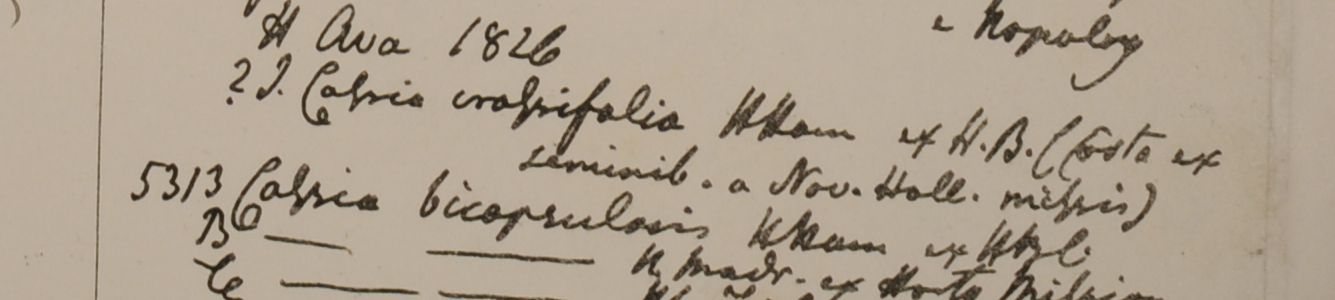 H Ava 1826
e Napaley
? I. Cassia crassifolia HHam ex H.B. (Costa ex
seminib. a Nov. Holl. missis)
5313 Cassia bicapsularis HHam ex HHyl.
B — — H. madr. ex Horto Mission
C — —